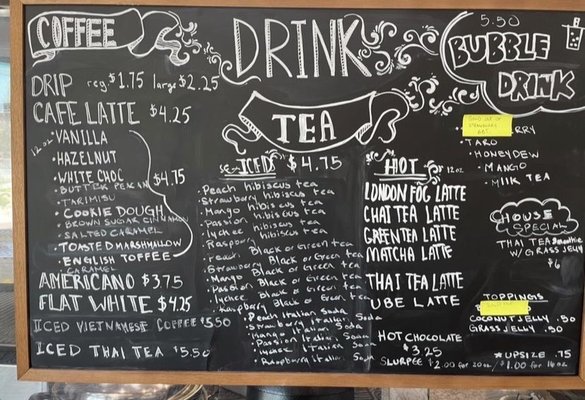 COFFEE
DRIP reg $1.75 large $2.25
CAFE LATTE $4.25
12oz
• VANILLA
• HAZELNUT
• WHITE CHOC $4.75
• BUTTER PECAN
• TARIMISU
• COOKIE DOUGH
• BROWN SUGAR CINNAMON
• SALTED CARAMEL
• TOASTED MARSHMALLOW
• ENGLISH TOFFEE
CARAMEL
AMERICANO $3.75
FLAT WHITE $4.25
ICED VIETNAMESE COFFEE $5.50
ICED THAI TEA $5.50
DRINK
TEA
ICED $4.75
Peach hibiscus tea
Strawberry hibiscus tea
Mango hibiscus tea
Passion hibiscus tea
Lychee hibiscus tea
Raspberry hibiscus tea
Peach Black or Green tea
Strawberry Black or Green tea
Mango Black or Green tea
Passion Black or Green tea
Lychee Black or Green tea
Raspberry Black or Green tea
• Peach Italian Soda
• Strawberry Italian Soda
• Mango Italian Soda
• Passion Italian Soda
• Lychee Italian Soda
• Raspberry Italian Soda
HOT 12oz
LONDON FOG LATTE
CHAI TEA LATTE
GREEN TEA LATTE
MATCHA LATTE
THAI TEA LATTE
UBE LATTE
HOT CHOCOLATE
$3.25
SLURPEE $2.00 for 20oz / $1.00 for 16oz
5.50
BUBBLE
DRINK
SOLD OUT OF
RRY
• TARO
• HONEYDEW
• MANGO
• MILK TEA
HOUSE
SPECIAL
THAI TEA Smoothie
W/ GRASS JELLY
$6
TOPPINGS
COCONUT JELLY .50
GRASS JELLY .50
* UPSIZE .75